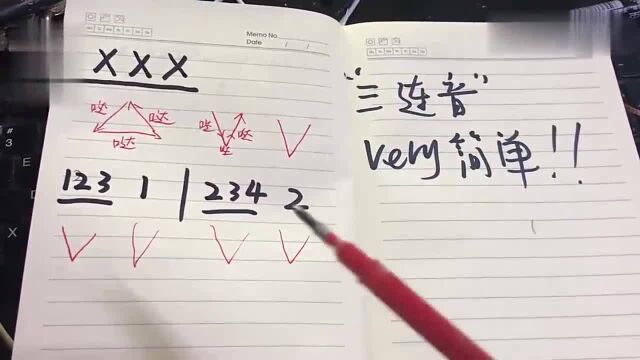 Memo No.
Date / /
X X X
哒 哒 哒
哒 哒 哒
123 1 | 234 2
"三连音"
very简单!!